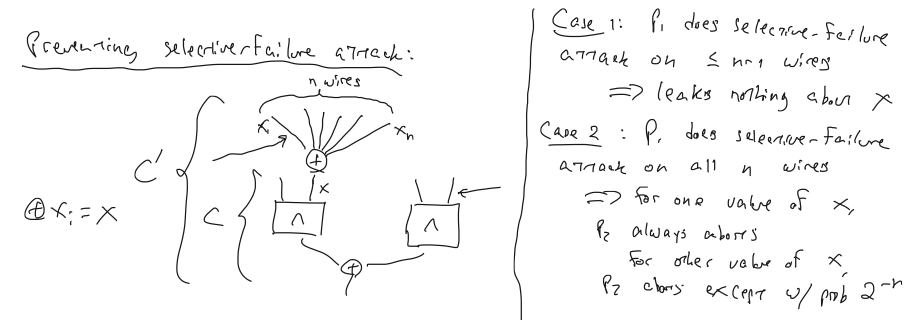 Preventing selective-failure attack:
n wires
x₁
xₙ
⊕
C'
x
C
⊕xᵢ = x
∧
∧
⊕
Case 1: P₁ does selective-failure
attack on ≤ n-1 wires
⇒ leaks nothing about x
Case 2: P₁ does selective-failure
attack on all n wires
⇒ for one value of x,
P₂ always aborts
for other value of x,
P₂ aborts except w/ prob 2⁻ⁿ